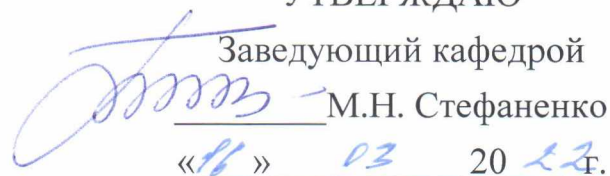 УТВЕРЖДАЮ
Заведующий кафедрой
М.Н. Стефаненко
«16» 03 2022г.